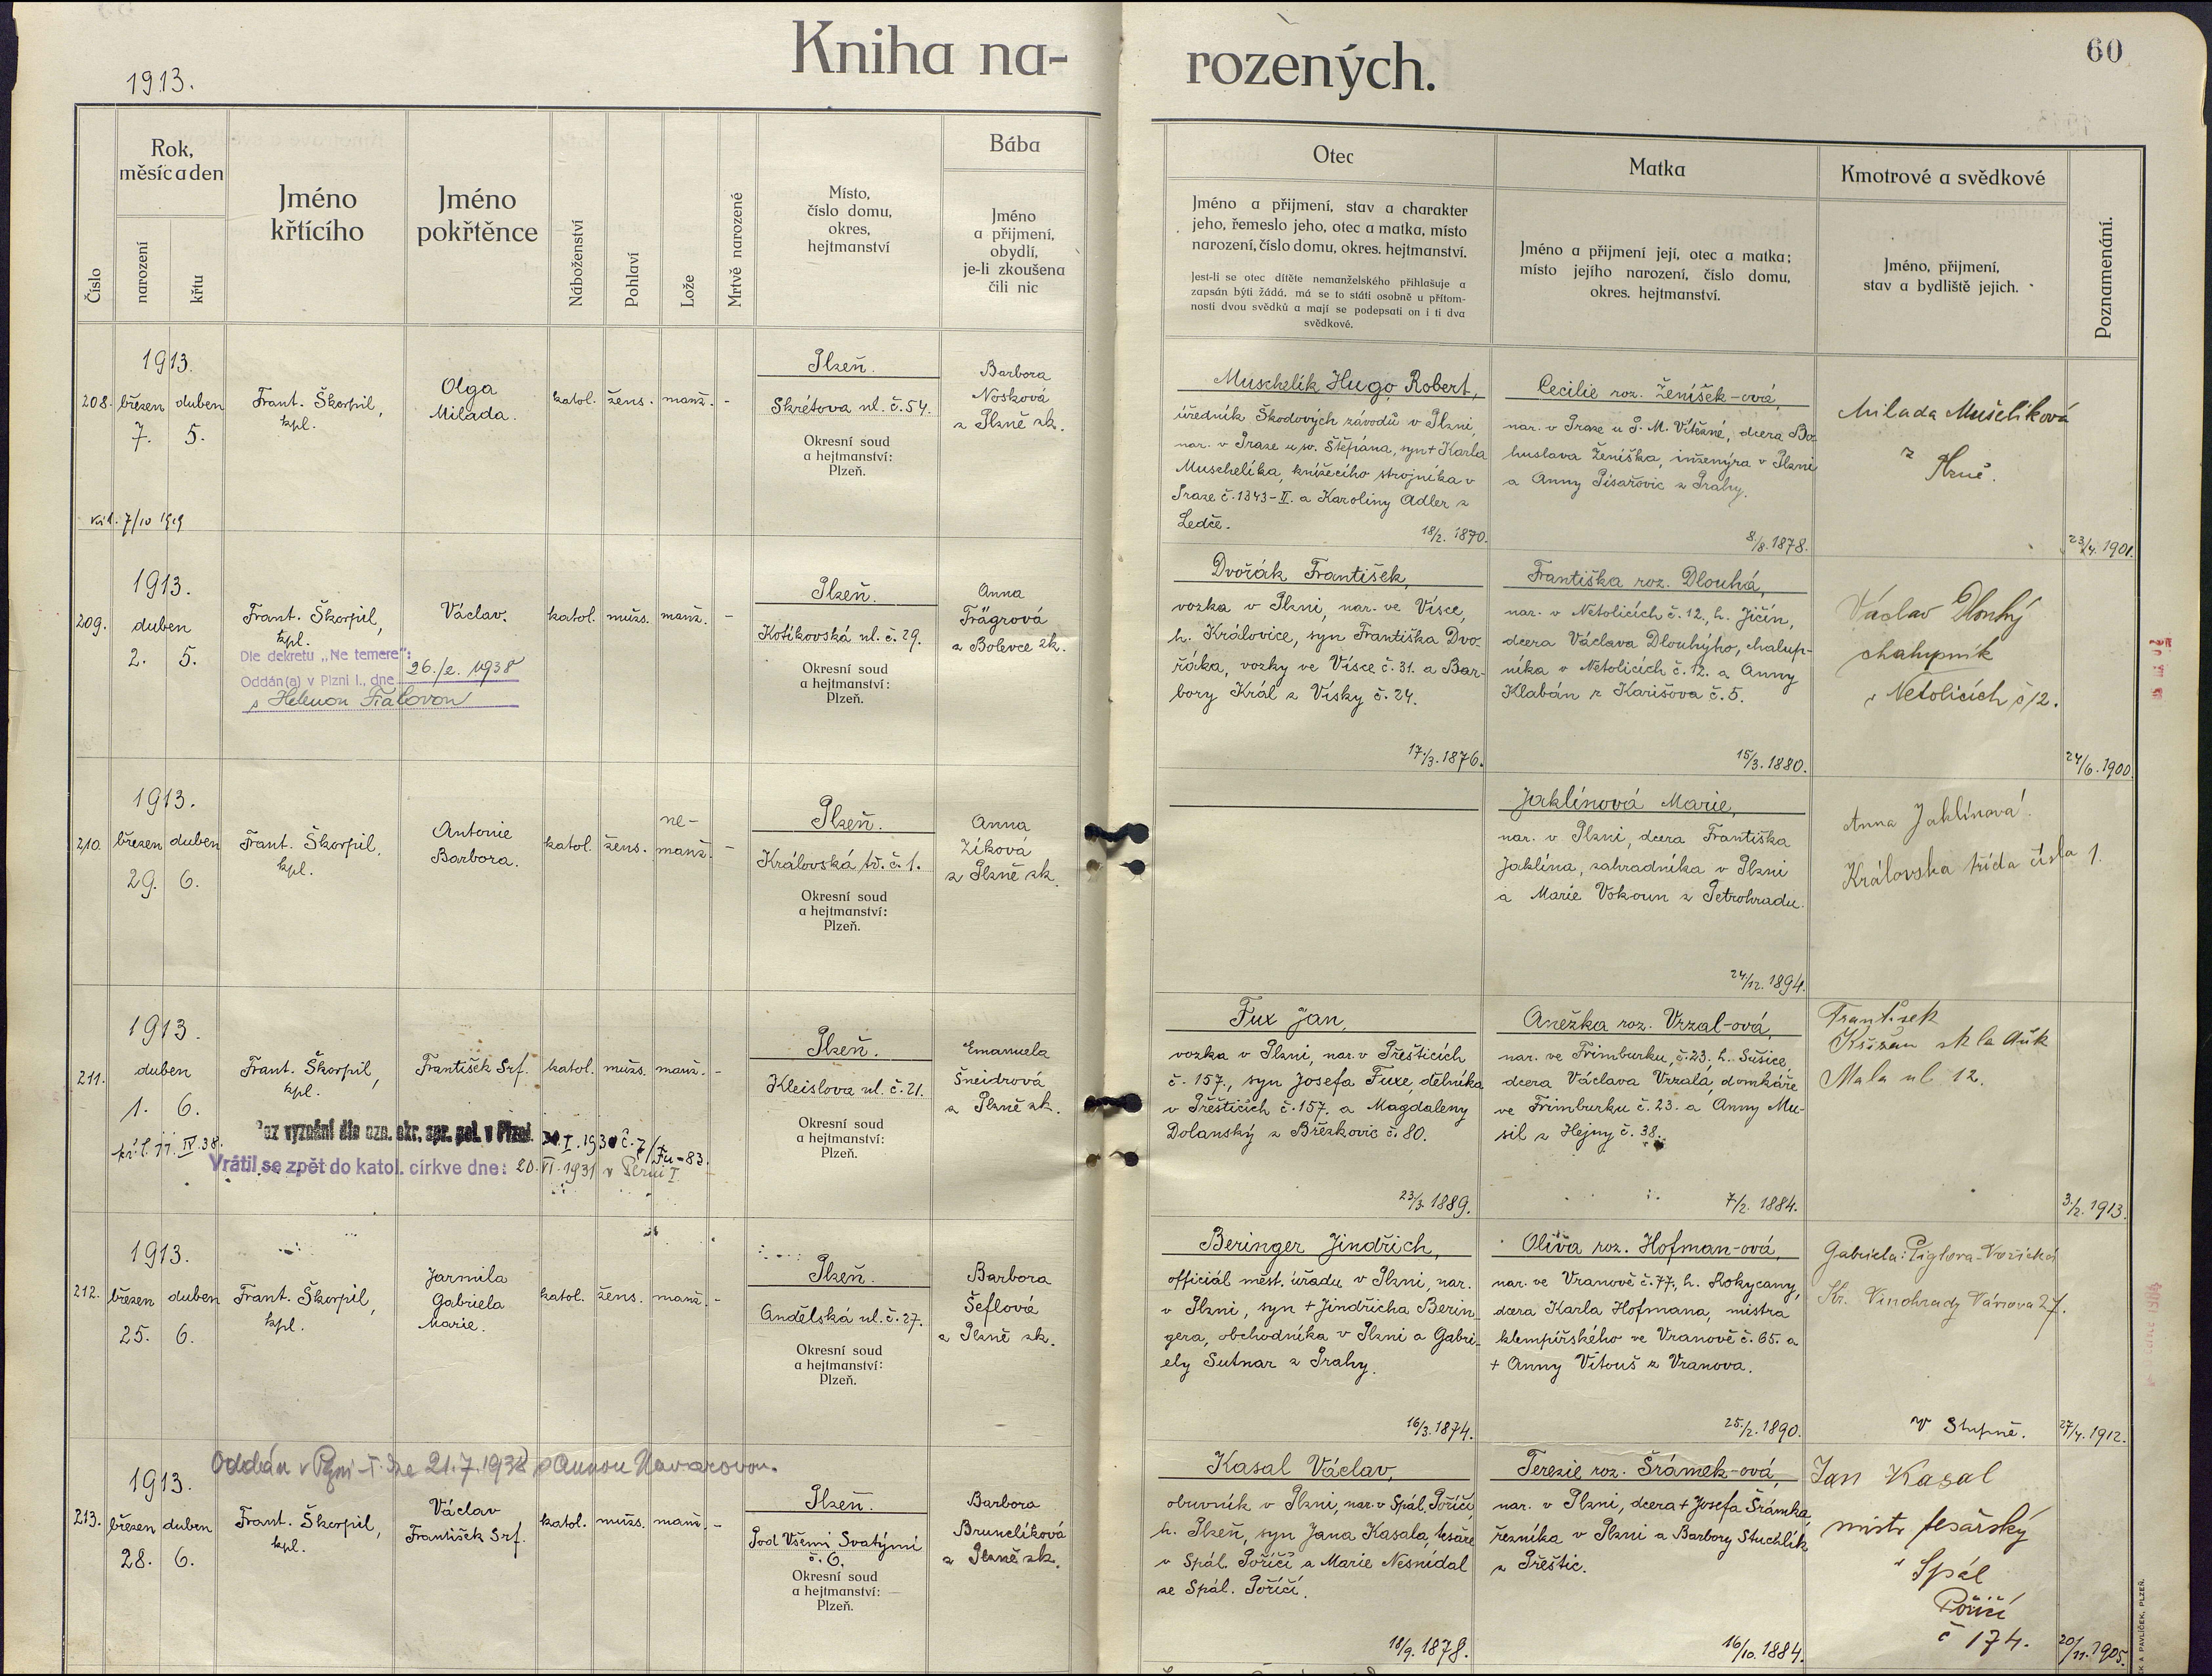 Kniha na-
rozených.
60
1913.
Číslo
Rok,
měsíc a den
narození
křtu
Jméno
křtícího
Jméno
pokřtěnce
Náboženství
Pohlaví
Lože
Mrtvě narozené
Místo,
číslo domu,
okres,
hejtmanství
Bába
Jméno
a přijmení,
obydlí,
je-li zkoušena
čili nic
Otec
Jméno a přijmení, stav a charakter
jeho, řemeslo jeho, otec a matka, místo
narození, číslo domu, okres. hejtmanství.
Jest-li se otec dítěte nemanželského přihlašuje a
zapsán býti žádá, má se to státi osobně u přítom-
nosti dvou svědků a mají se podepsati on i ti dva
svědkové.
Matka
Jméno a přijmení její, otec a matka;
místo jejího narození, číslo domu,
okres. hejtmanství.
Kmotrové a svědkové
Jméno, přijmení,
stav a bydliště jejich.
Poznamenání.
208.
1913.
březen duben
7. 5.
7/10 1919
Frant. Škorpil,
kpl.
Olga
Milada.
katol.
žens.
manž.
-
Plzeň.
Skrétova ul. č. 54.
Okresní soud
a hejtmanství:
Plzeň.
Barbora
Nosková
z Plzně zk.
Muschelík Hugo Robert,
úředník Škodových závodů v Plzni,
nar. v Praze u sv. Štěpána, syn + Karla
Muschelíka, knížecího strojníka v
Praze č. 1343-II. a Karoliny Adler z
Ledče.
18/2. 1870.
Cecilie roz. Ženíšek-ová,
nar. v Praze u P. M. Vítězné, dcera Bo-
huslava Ženíška, inženýra v Plzni
a Anny Pisařovic z Prahy.
8/8. 1878.
Milada Mušelíková
z
Plzně.
23/4. 1901.
209.
1913.
duben
2. 5.
Frant. Škorpil,
kpl.
Václav.
Dle dekretu „Ne temere":
Oddán(a) v Plzni I., dne 26./2. 1938
s Helenou
katol.
mužs.
manž.
-
Plzeň.
Kotíkovská ul. č. 29.
Okresní soud
a hejtmanství:
Plzeň.
Anna
Frägrová
z Bolevce zk.
Dvořák František,
vozka v Plzni, nar. ve Vísce,
h. Královice, syn Františka Dvo-
řáka, vozky ve Vísce č. 31. a Bar-
bory Král z Vísky č. 24.
17./3. 1876.
Františka roz. Dlouhá,
nar. v Netolicích č. 12., h. Jičín,
dcera Václava Dlouhýho, chalup-
níka v Netolicích č. 12. a Anny
Klabán z Karišova č. 5.
15/3. 1880.
Václav Dlouhý
chalupník
v Netolicích č 12.
24/6. 1900.
210.
1913.
březen duben
29. 6.
Frant. Škorpil,
kpl.
Antonie
Barbora.
katol.
žens.
ne-
manž.
-
Plzeň.
Královská tř. č. 1.
Okresní soud
a hejtmanství:
Plzeň.
Anna
Zíková
z Plzně zk.
Jaklínová Marie,
nar. v Plzni, dcera Františka
Jaklína, zahradníka v Plzni
a Marie Vokoun z Petrohradu.
24/12. 1894.
Anna Jaklínová
Královska třída čísla 1.
211.
1913.
duben
1. 6.
IV. 38.
Frant. Škorpil,
kpl.
František Srf.
Bez vyznání dle ozn. okr. spr. pol. v Plzni I. 1930 č. 7/Fu-83.
Vrátil se zpět do katol. církve dne: 20. VI. 1931 v Plzni I.
katol.
mužs.
manž.
-
Plzeň.
Kleislova ul. č. 21.
Okresní soud
a hejtmanství:
Plzeň.
Emanuela
Šneidrová
z Plzně zk.
Fux Jan,
vozka v Plzni, nar. v Přešticích
č. 157., syn Josefa Fuxe, dělníka
v Přešticích č. 157. a Magdaleny
Dolanský z Březkovic č. 80.
23/3. 1889.
Anežka roz. Vrzal-ová,
nar. ve Frimburku, č. 23, h. Sušice,
dcera Václava Vrzala, domkáře
ve Frimburku č. 23. a Anny Mu-
sil z Hejny č. 38.
7/2. 1884.
František
Křižan
Mala ul 12.
3./2. 1913.
212.
1913.
březen duben
25. 6.
Frant. Škorpil,
kpl.
Jarmila
Gabriela
Marie.
katol.
žens.
manž.
-
Plzeň.
Andělská ul. č. 27.
Okresní soud
a hejtmanství:
Plzeň.
Barbora
Šeflová
z Plzně zk.
Beringer Jindřich,
officiál měst. úřadu v Plzni, nar.
v Plzni, syn + Jindřicha Berin-
gera, obchodníka v Plzni a Gabri-
ely Sutnar z Prahy.
16/3. 1874.
Oliva roz. Hofman-ová,
nar. ve Vranově č. 77., h. Rokycany,
dcera Karla Hofmana, mistra
klempířského ve Vranově č. 65. a
+ Anny Vitouš z Vranova.
25./2. 1890.
Gabriela
Kr. Vinohrady 27.
v Stupně.
27/4. 1912.
213.
Oddán v Plzni-I. dne 21.7.1938 s Annou
1913.
březen duben
28. 6.
Frant. Škorpil,
kpl.
Václav
František Srf.
katol.
mužs.
manž.
-
Plzeň.
Pod Všemi Svatými
č. 6.
Okresní soud
a hejtmanství:
Plzeň.
Barbora
Brunclíková
z Plzně zk.
Kasal Václav,
obuvník v Plzni, nar. v Spál. Poříčí,
h. Plzeň, syn Jana Kasala, tesaře
v Spál. Poříčí a Marie Nesnídal
ze Spál. Poříčí.
18/9. 1878.
Terezie roz. Šrámek-ová,
nar. v Plzni, dcera + Josefa Šrámka,
řezníka v Plzni a Barbory Stuchlík
z Přeštic.
16/10. 1884.
Jan Kasal
mistr tesařský
v Spál
Poříčí
č 174.
20/11. 1905.
PAVLÍČEK, PLZEŇ.